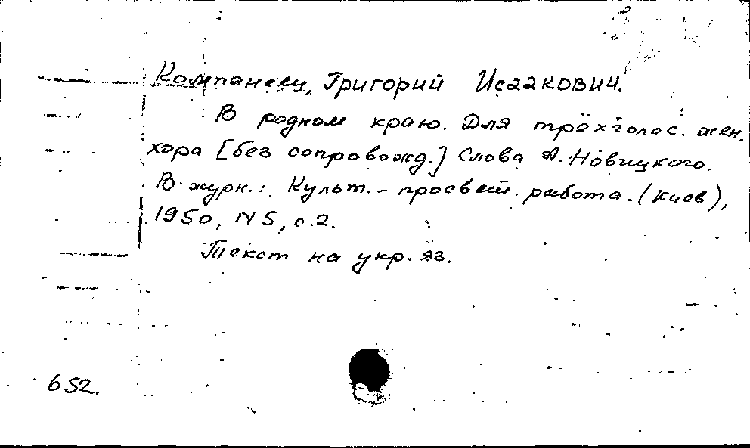 Компанеец, Григорий Исаакович.
В родном краю. Для трёхголос. жен.
хора [без сопровожд.] Слова А. Новицкого.
В журн.: Культ.-просвет. работа. (Киев),
1950, N 5, с. 2.
Текст на укр. яз.
652.